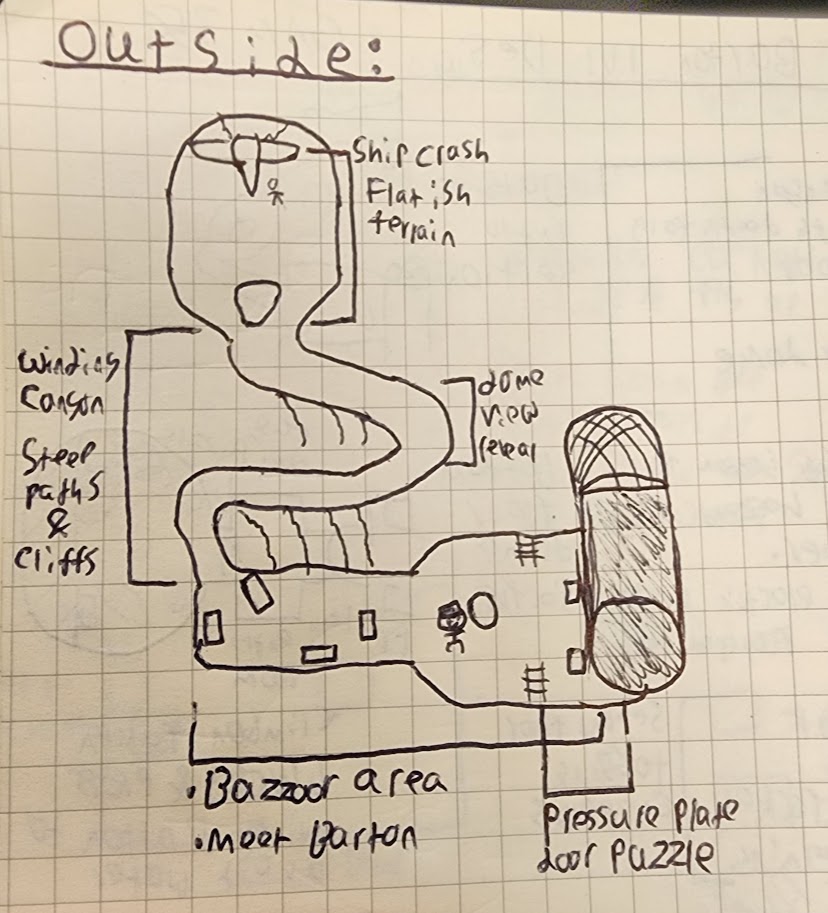 Outside:
Ship crash
Flatish
terrain
Winding
Canyon
Steep
paths
&
Cliffs
dome
view
reveal
• Bazzoor area
• Meet Barton
Pressure Plate
door Puzzle